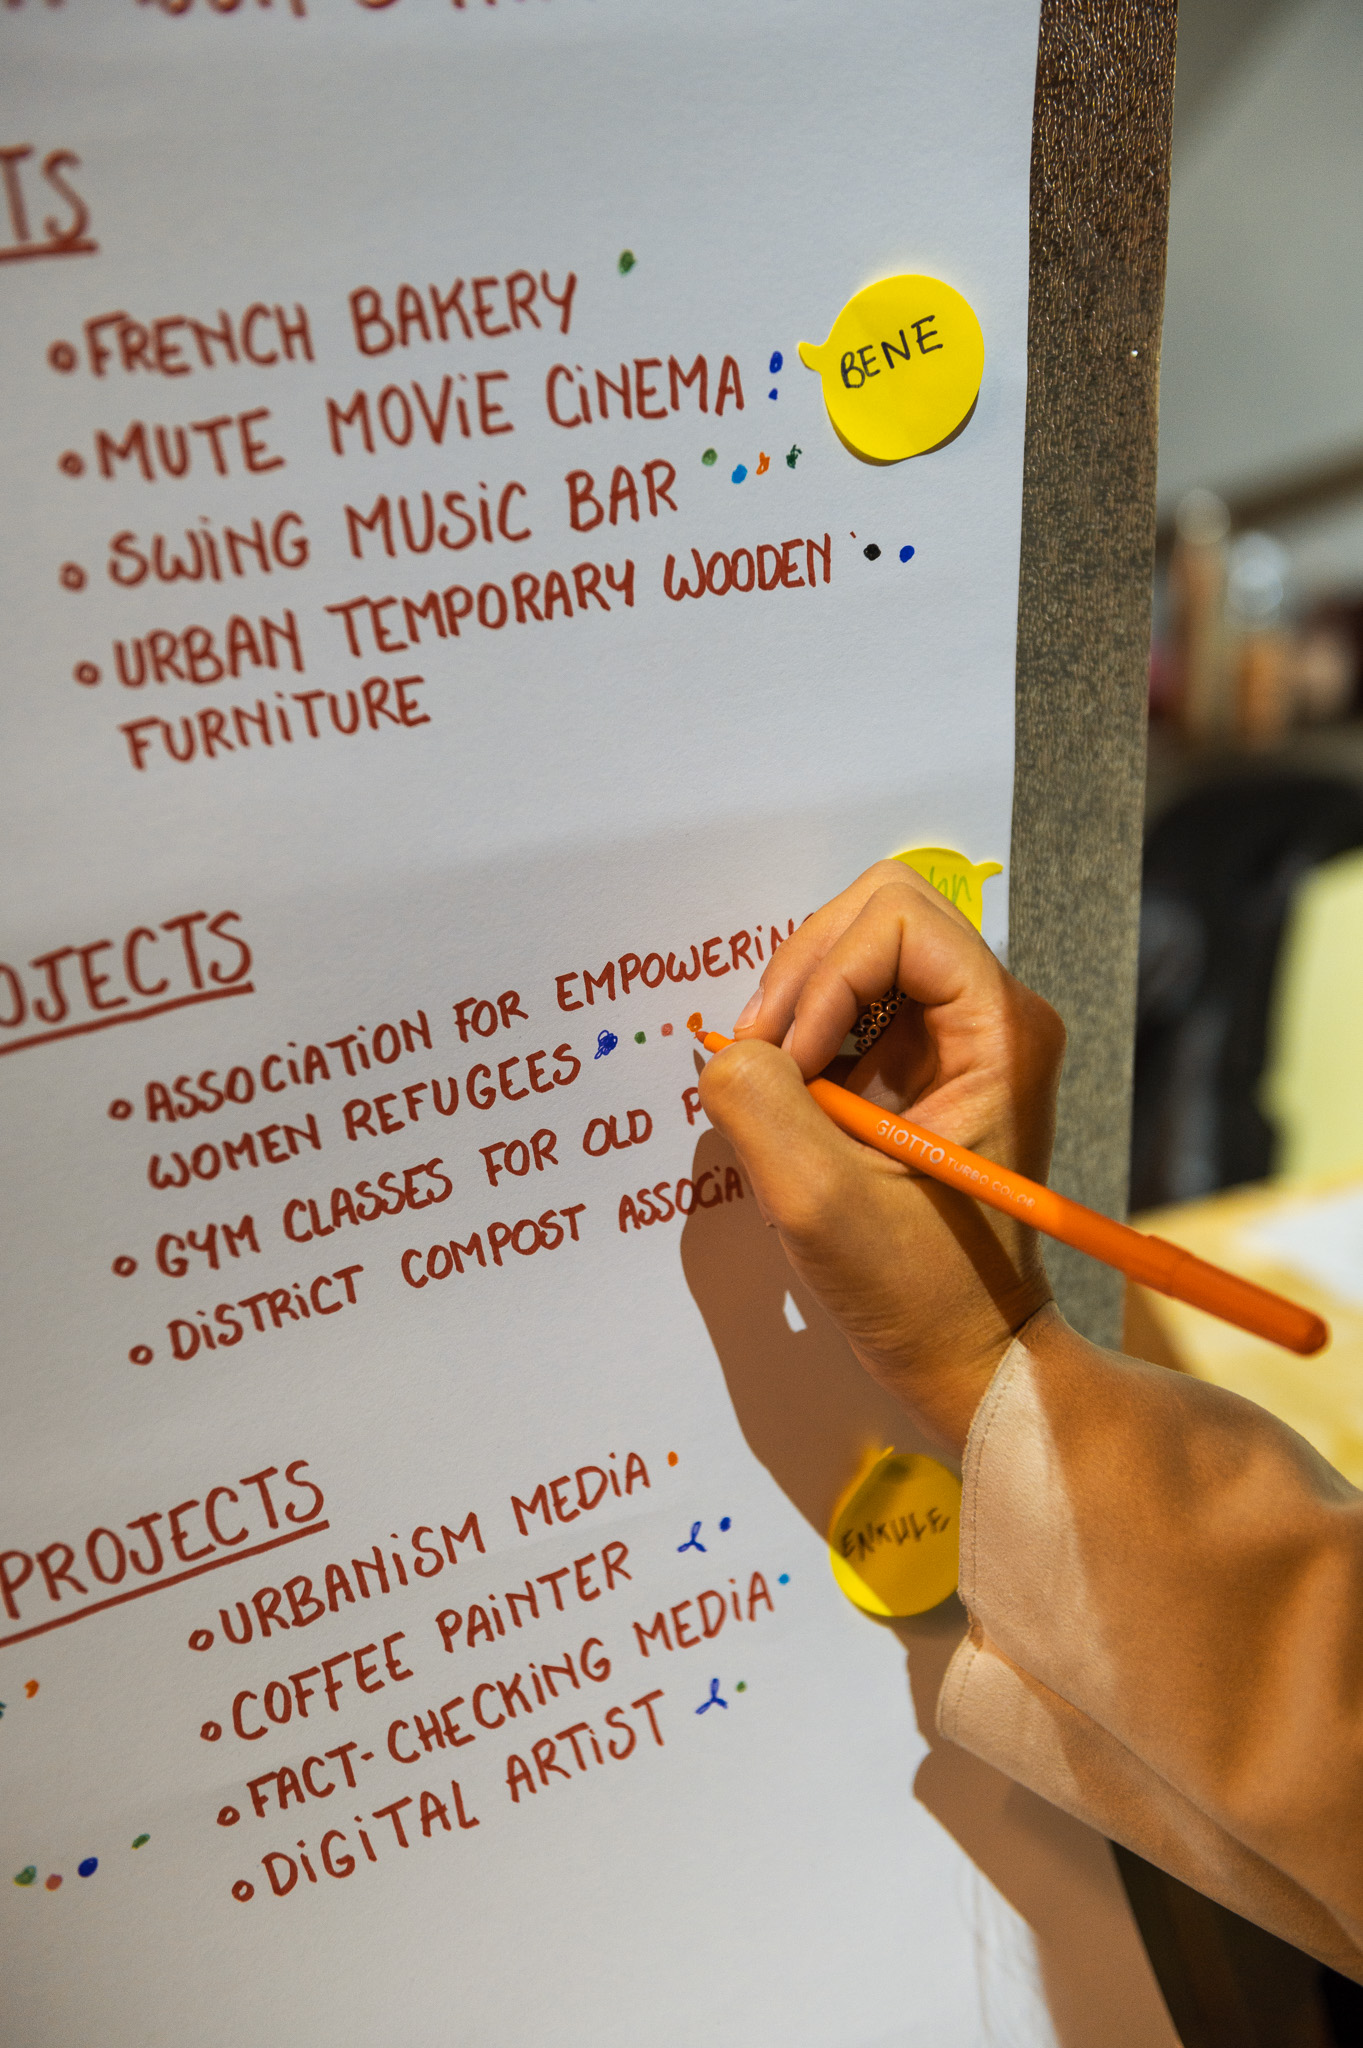 FRENCH BAKERY
MUTE MOViE CiNEMA
BENE
SWiNG MUSiC BAR
URBAN TEMPORARY WOODEN
FURNiTURE
PROJECTS
ASSOCiATiON FOR
WOMEN REFUGEES
GYM CLASSES FOR OLD
DiSTRiCT COMPOST
GIOTTO TURBO COLOR
PROJECTS
URBANiSM MEDiA
COFFEE PAiNTER
ENKULE
FACT-CHECKiNG MEDiA
DiGiTAL ARTiST